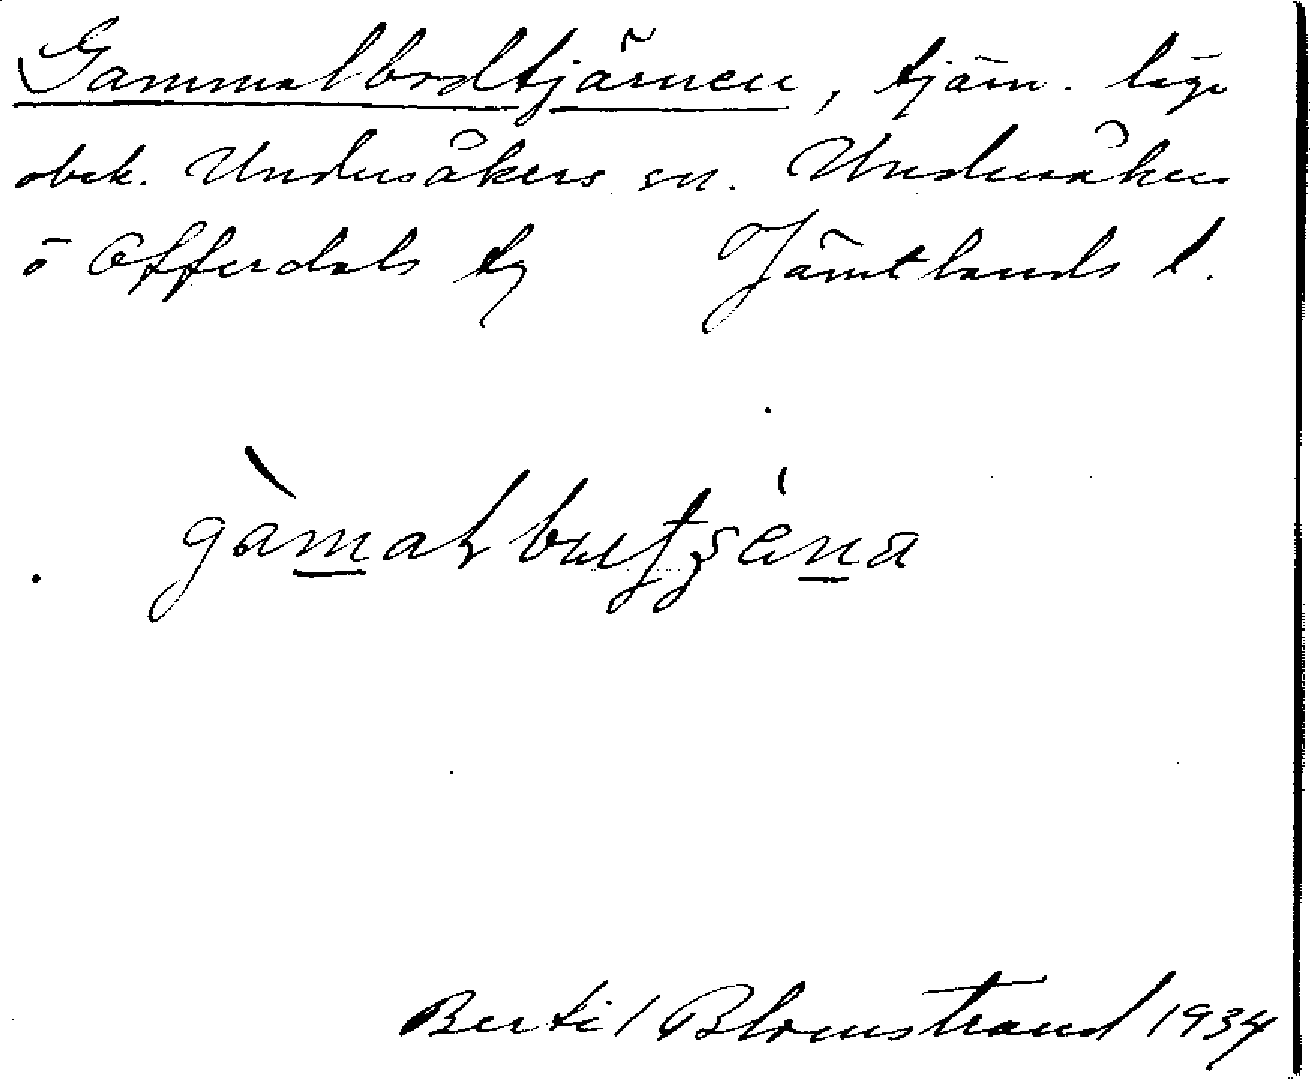 Gammalbodtjärnen, tjärn. läge
obek. Undersåkers sn. Undersåkers
o Offerdals tg Jämtlands l.
gàmal butʂéna
Bertil Blomstrand 1934